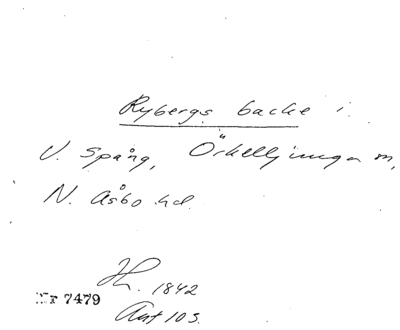 Rybergs backe i
V. Spång, Örkelljunga sn,
N. Åsbo hd.
1842
Nr 7479
Ant 103.